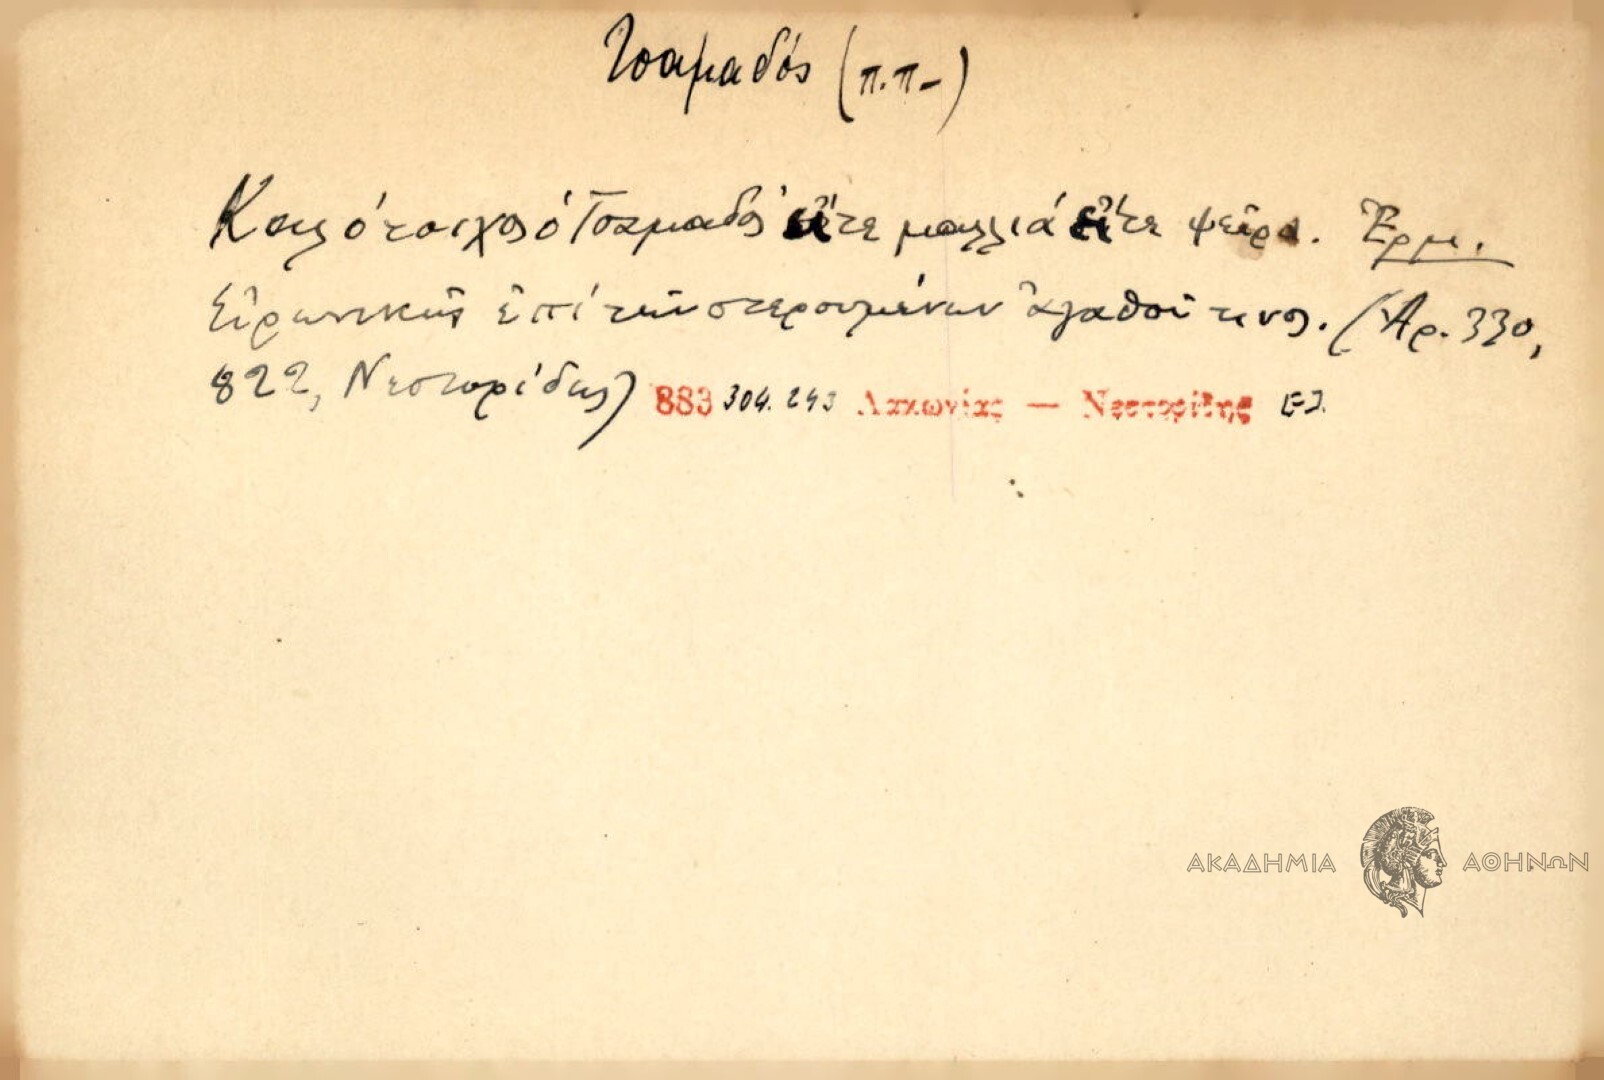 Τσαμαδός (π.π-)
ὁ Τσαμαδός εἴτε μαλλιά εἴτε ψεῖρα. Ἑρμ.
Εἰρωνικῶς ἐπί τῶν στερουμένων ἀγαθοῦ τινος. (Ἀρ. 330,
822, Νεστορίδης) 883 304. 243 Λακωνίας — Νεστορίδης
ΑΚΑΔΗΜΙΑ ΑΘΗΝΩΝ